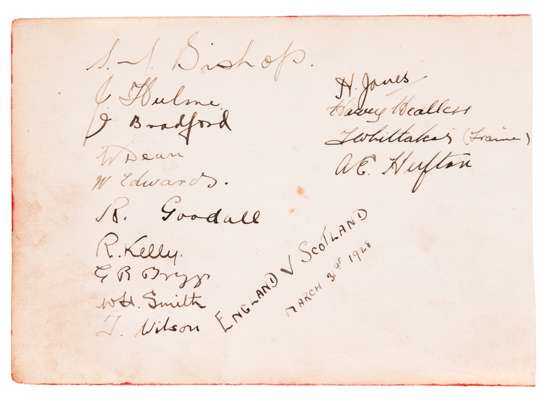 S. J. Bishop.
J. Hulme
J Bradford
W Dean
W Edwards.
R. Goodall
R. Kelly.
G R Briggs
W H. Smith
T. Wilson
H. Jones
Henry Healless
T Whittaker (Trainer)
A E. Hufton
ENGLAND V SCOTLAND
MARCH 1928